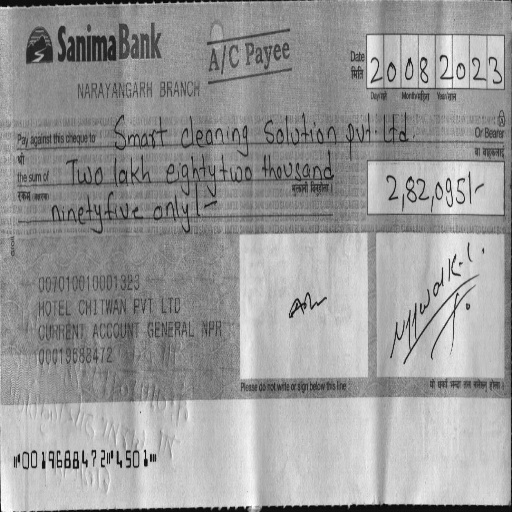 Sanima Bank
A/C Payee
NARAYANGARH BRANCH
Date
मिति
20 08 2023
Day/गते Month/महिना Year/साल
Pay against this cheque to Smart cleaning Solution pvt. Ltd. Or Bearer
श्री वा वाहकलाई
the sum of Two lakh eighty two thousand
ninetyfive only/-
2,82,095/-
007010010001323
HOTEL CHITWAN PVT LTD
CURRENT ACCOUNT GENERAL NPR
00019688472
Please do not write or sign below this line
⑈0019688472⑈4501⑈